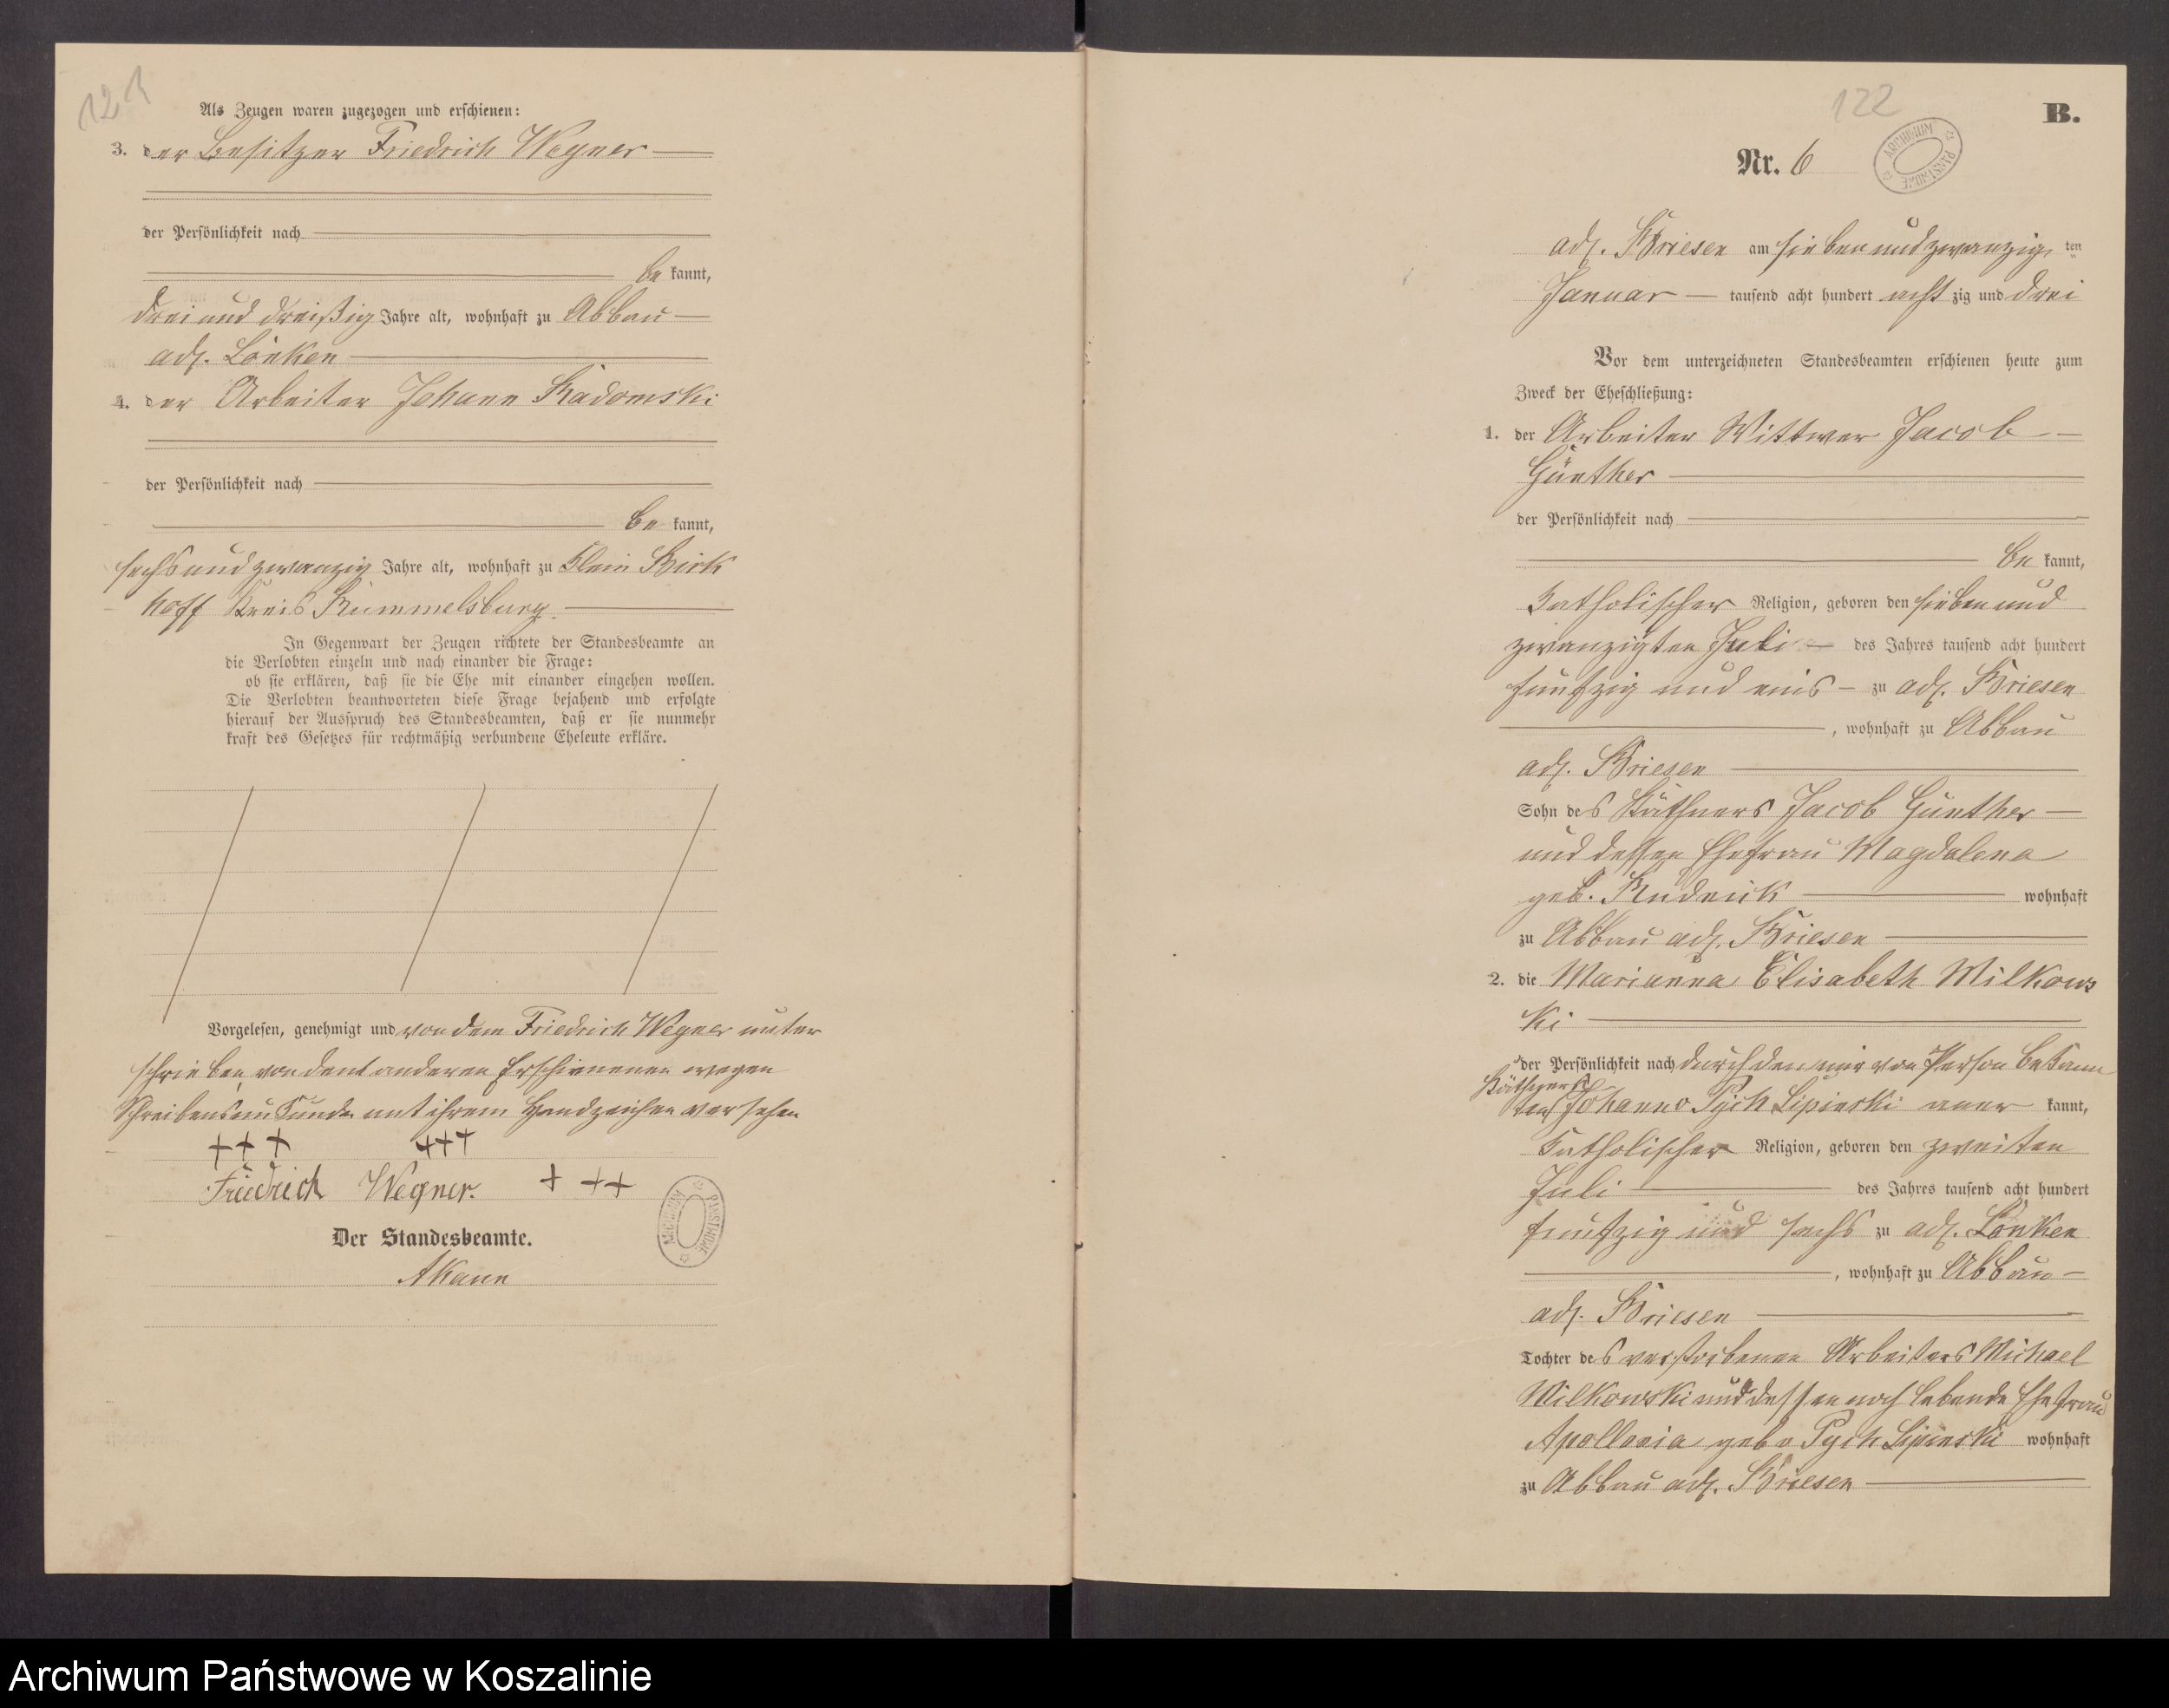 121
Als Zeugen waren zugezogen und erschienen:
3. der Besitzer Friedrich Wegner
der Persönlichkeit nach
be kannt,
drei und dreißig Jahre alt, wohnhaft zu Abbau
adl. Lonken
4. der Arbeiter Johann Radomski
der Persönlichkeit nach
be kannt,
sechsundzwanzig Jahre alt, wohnhaft zu Klein
hoff Kreis Rummelsburg
In Gegenwart der Zeugen richtete der Standesbeamte an
die Verlobten einzeln und nach einander die Frage:
ob sie erklären, daß sie die Ehe mit einander eingehen wollen.
Die Verlobten beantworteten diese Frage bejahend und erfolgte
hierauf der Ausspruch des Standesbeamten, daß er sie nunmehr
kraft des Gesetzes für rechtmäßig verbundene Eheleute erkläre.
Vorgelesen, genehmigt und von dem Friedrich Wegner unter
schrieben, von den anderen Erschienenen wegen
Schreibensunkunde mit ihrem Handzeichen versehen
+++ +++
Friedrich Wegner. +++
Der Standesbeamte.
AKann
ARCHIWUM PAŃSTWOWE
122
B.
Nr. 6
ARCHIWUM PAŃSTWOWE
adl. Briesen am siebenundzwanzig ten
Januar tausend acht hundert acht zig und drei
Vor dem unterzeichneten Standesbeamten erschienen heute zum
Zweck der Eheschließung:
1. der Arbeiter Wittwer Jacob
Günther
der Persönlichkeit nach
be kannt,
katholischer Religion, geboren den sieben und
zwanzigsten Juli des Jahres tausend acht hundert
funfzig und eins zu adl. Briesen
, wohnhaft zu Abbau
adl. Briesen
Sohn des Käthners Jacob Günther
und dessen Ehefrau Magdalena
geb. wohnhaft
zu Abbau adl. Briesen
2. die Marianna Elisabeth Milkows
ki
der Persönlichkeit nach durch den mir von Person bekann
Käthner
ten Johann v Pych Lipinski aner kannt,
katholischer Religion, geboren den zweiten
Juli des Jahres tausend acht hundert
funfzig und sechs zu adl. Lonken
, wohnhaft zu Abbau
adl. Briesen
Tochter des verstorbenen Arbeiters Michael
Milkowski und dessen noch lebende Ehefrau
Apollonia geb v Pych Lipinski wohnhaft
zu Abbau adl. Briesen
Archiwum Państwowe w Koszalinie